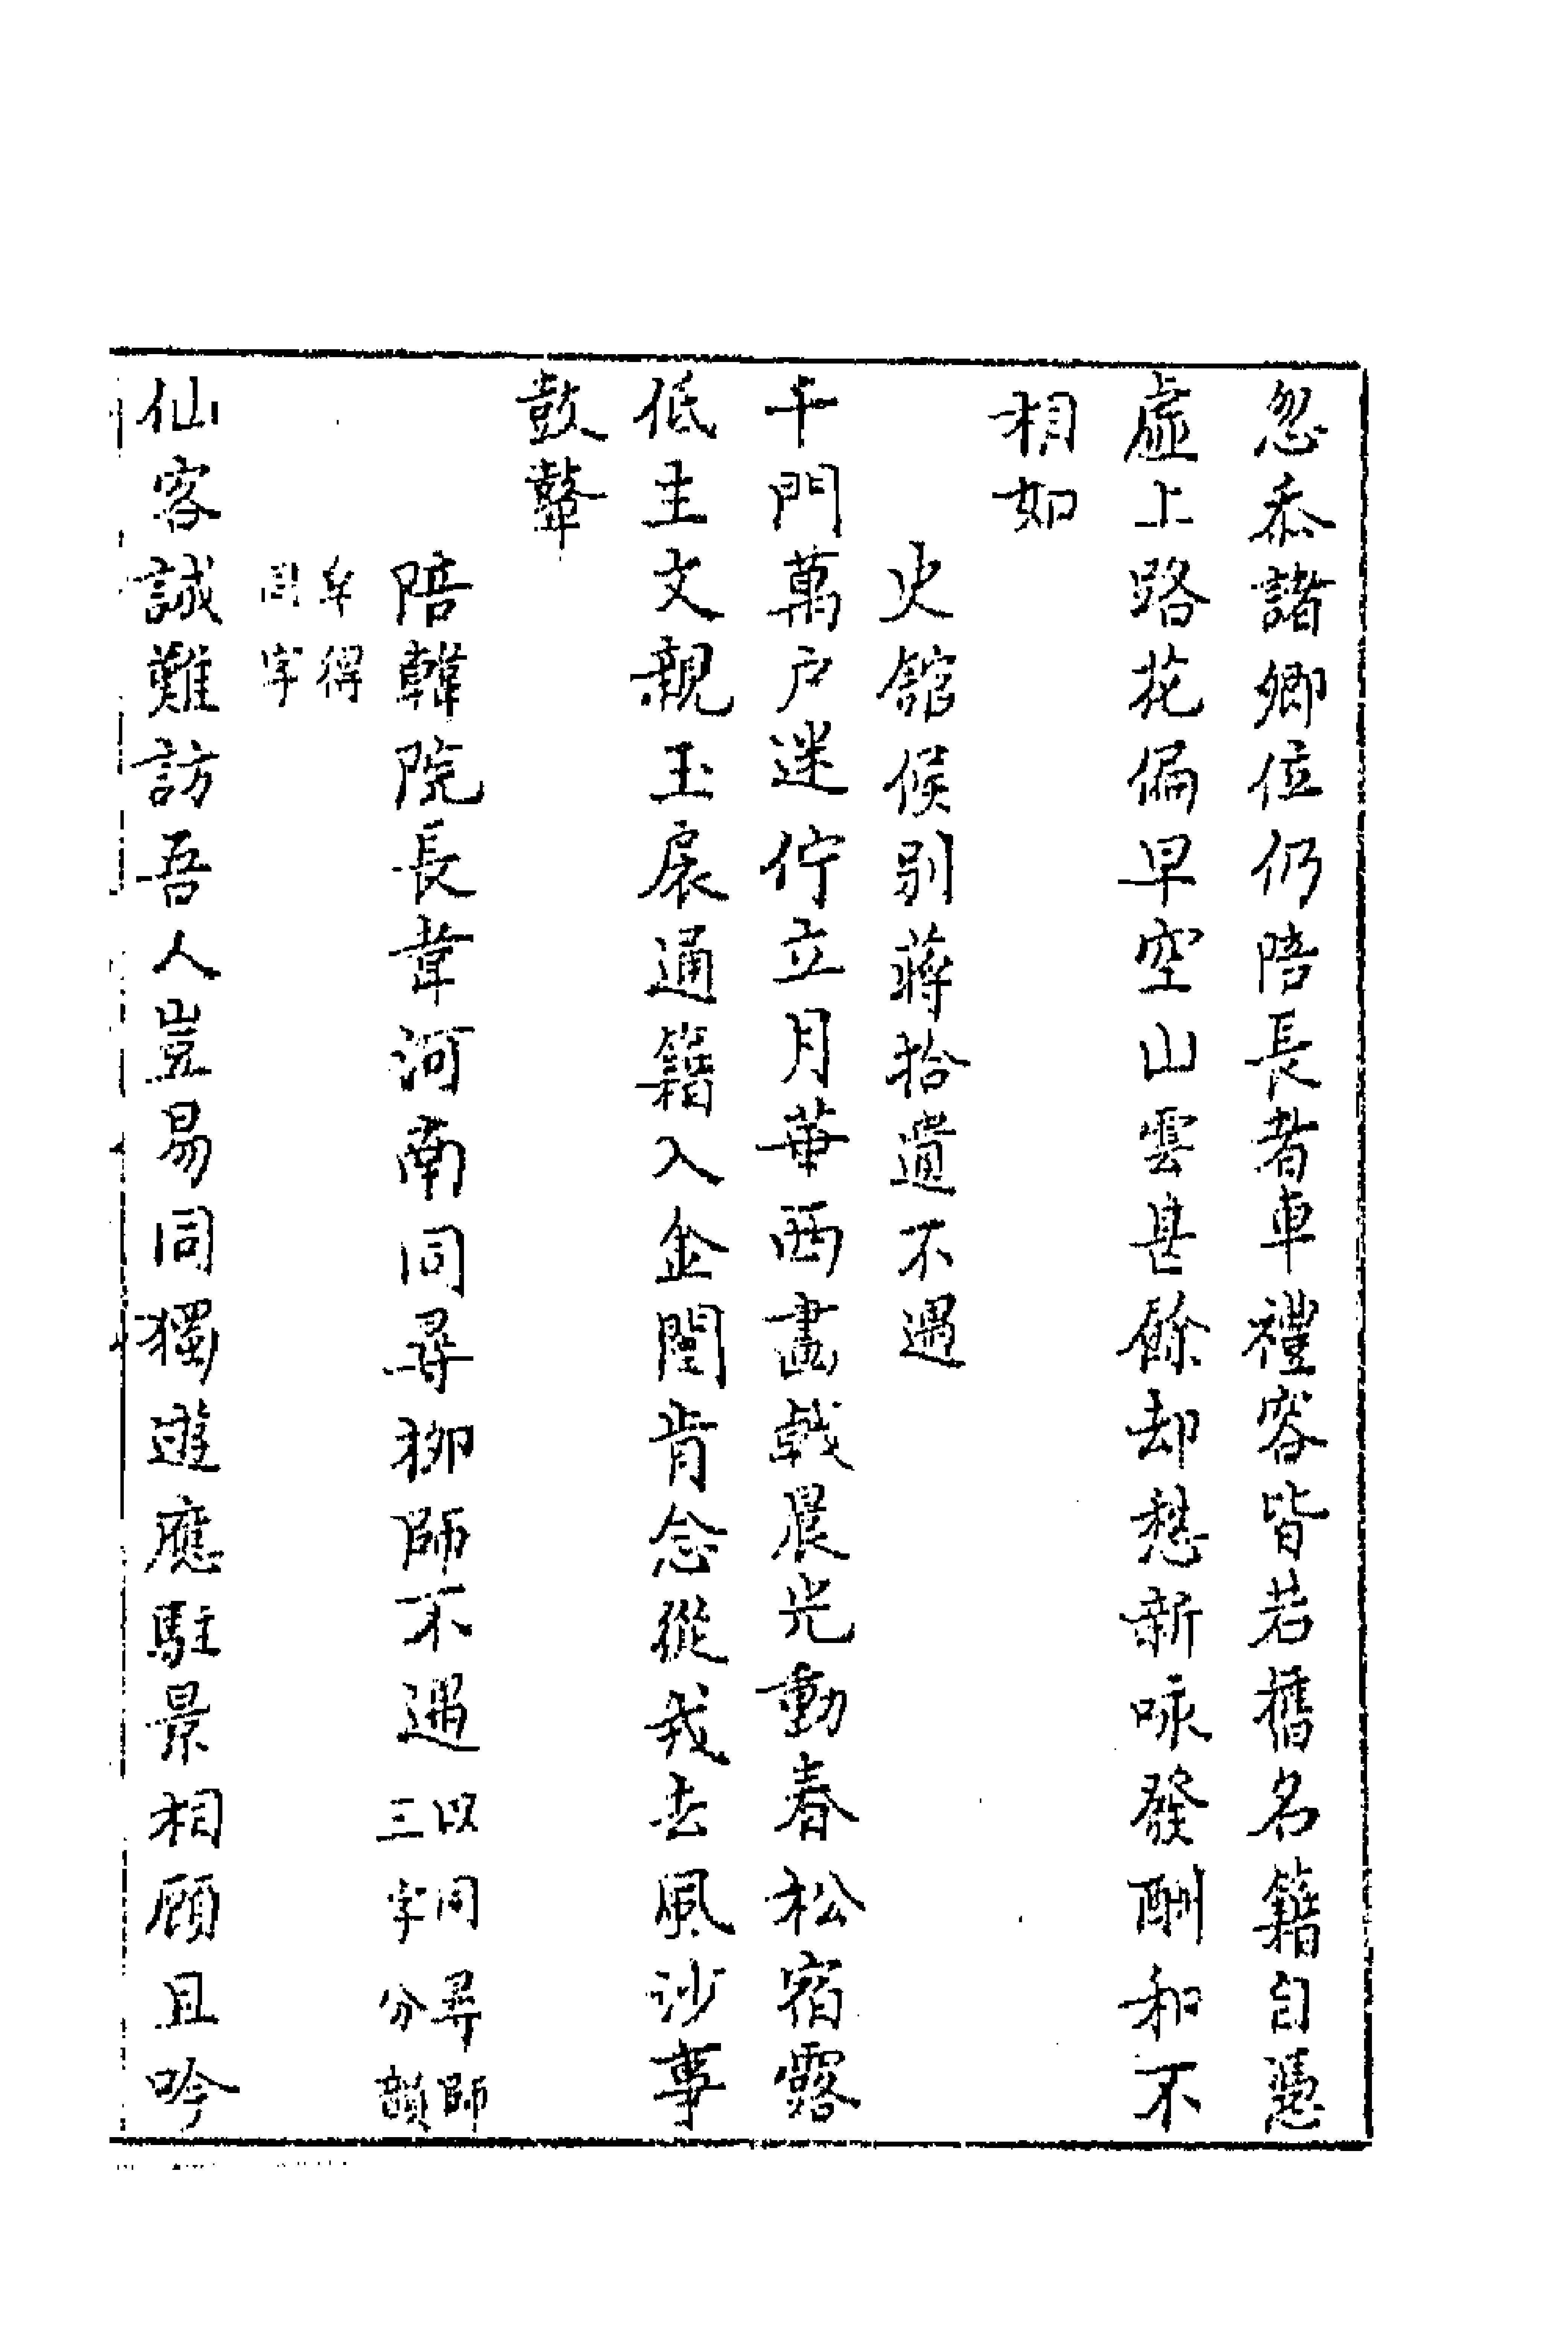 忽忝諸卿位仍陪長者車禮容皆若舊名籍自憑
虛上路花偏早空山雲甚餘却愁新咏發酬和不
相如
史舘候别蔣拾遺不遇
千門萬户迷佇立月華西畫戟晨光動春松宿露
低主文親玉扆通籍入金閨肯念從戎去風沙事
鼓鼙
陪韓院長韋河南同尋柳師不遇
以同尋師
三字分韻
牟得
同字
仙客誠難訪吾人豈易同獨遊應駐景相顧且吟